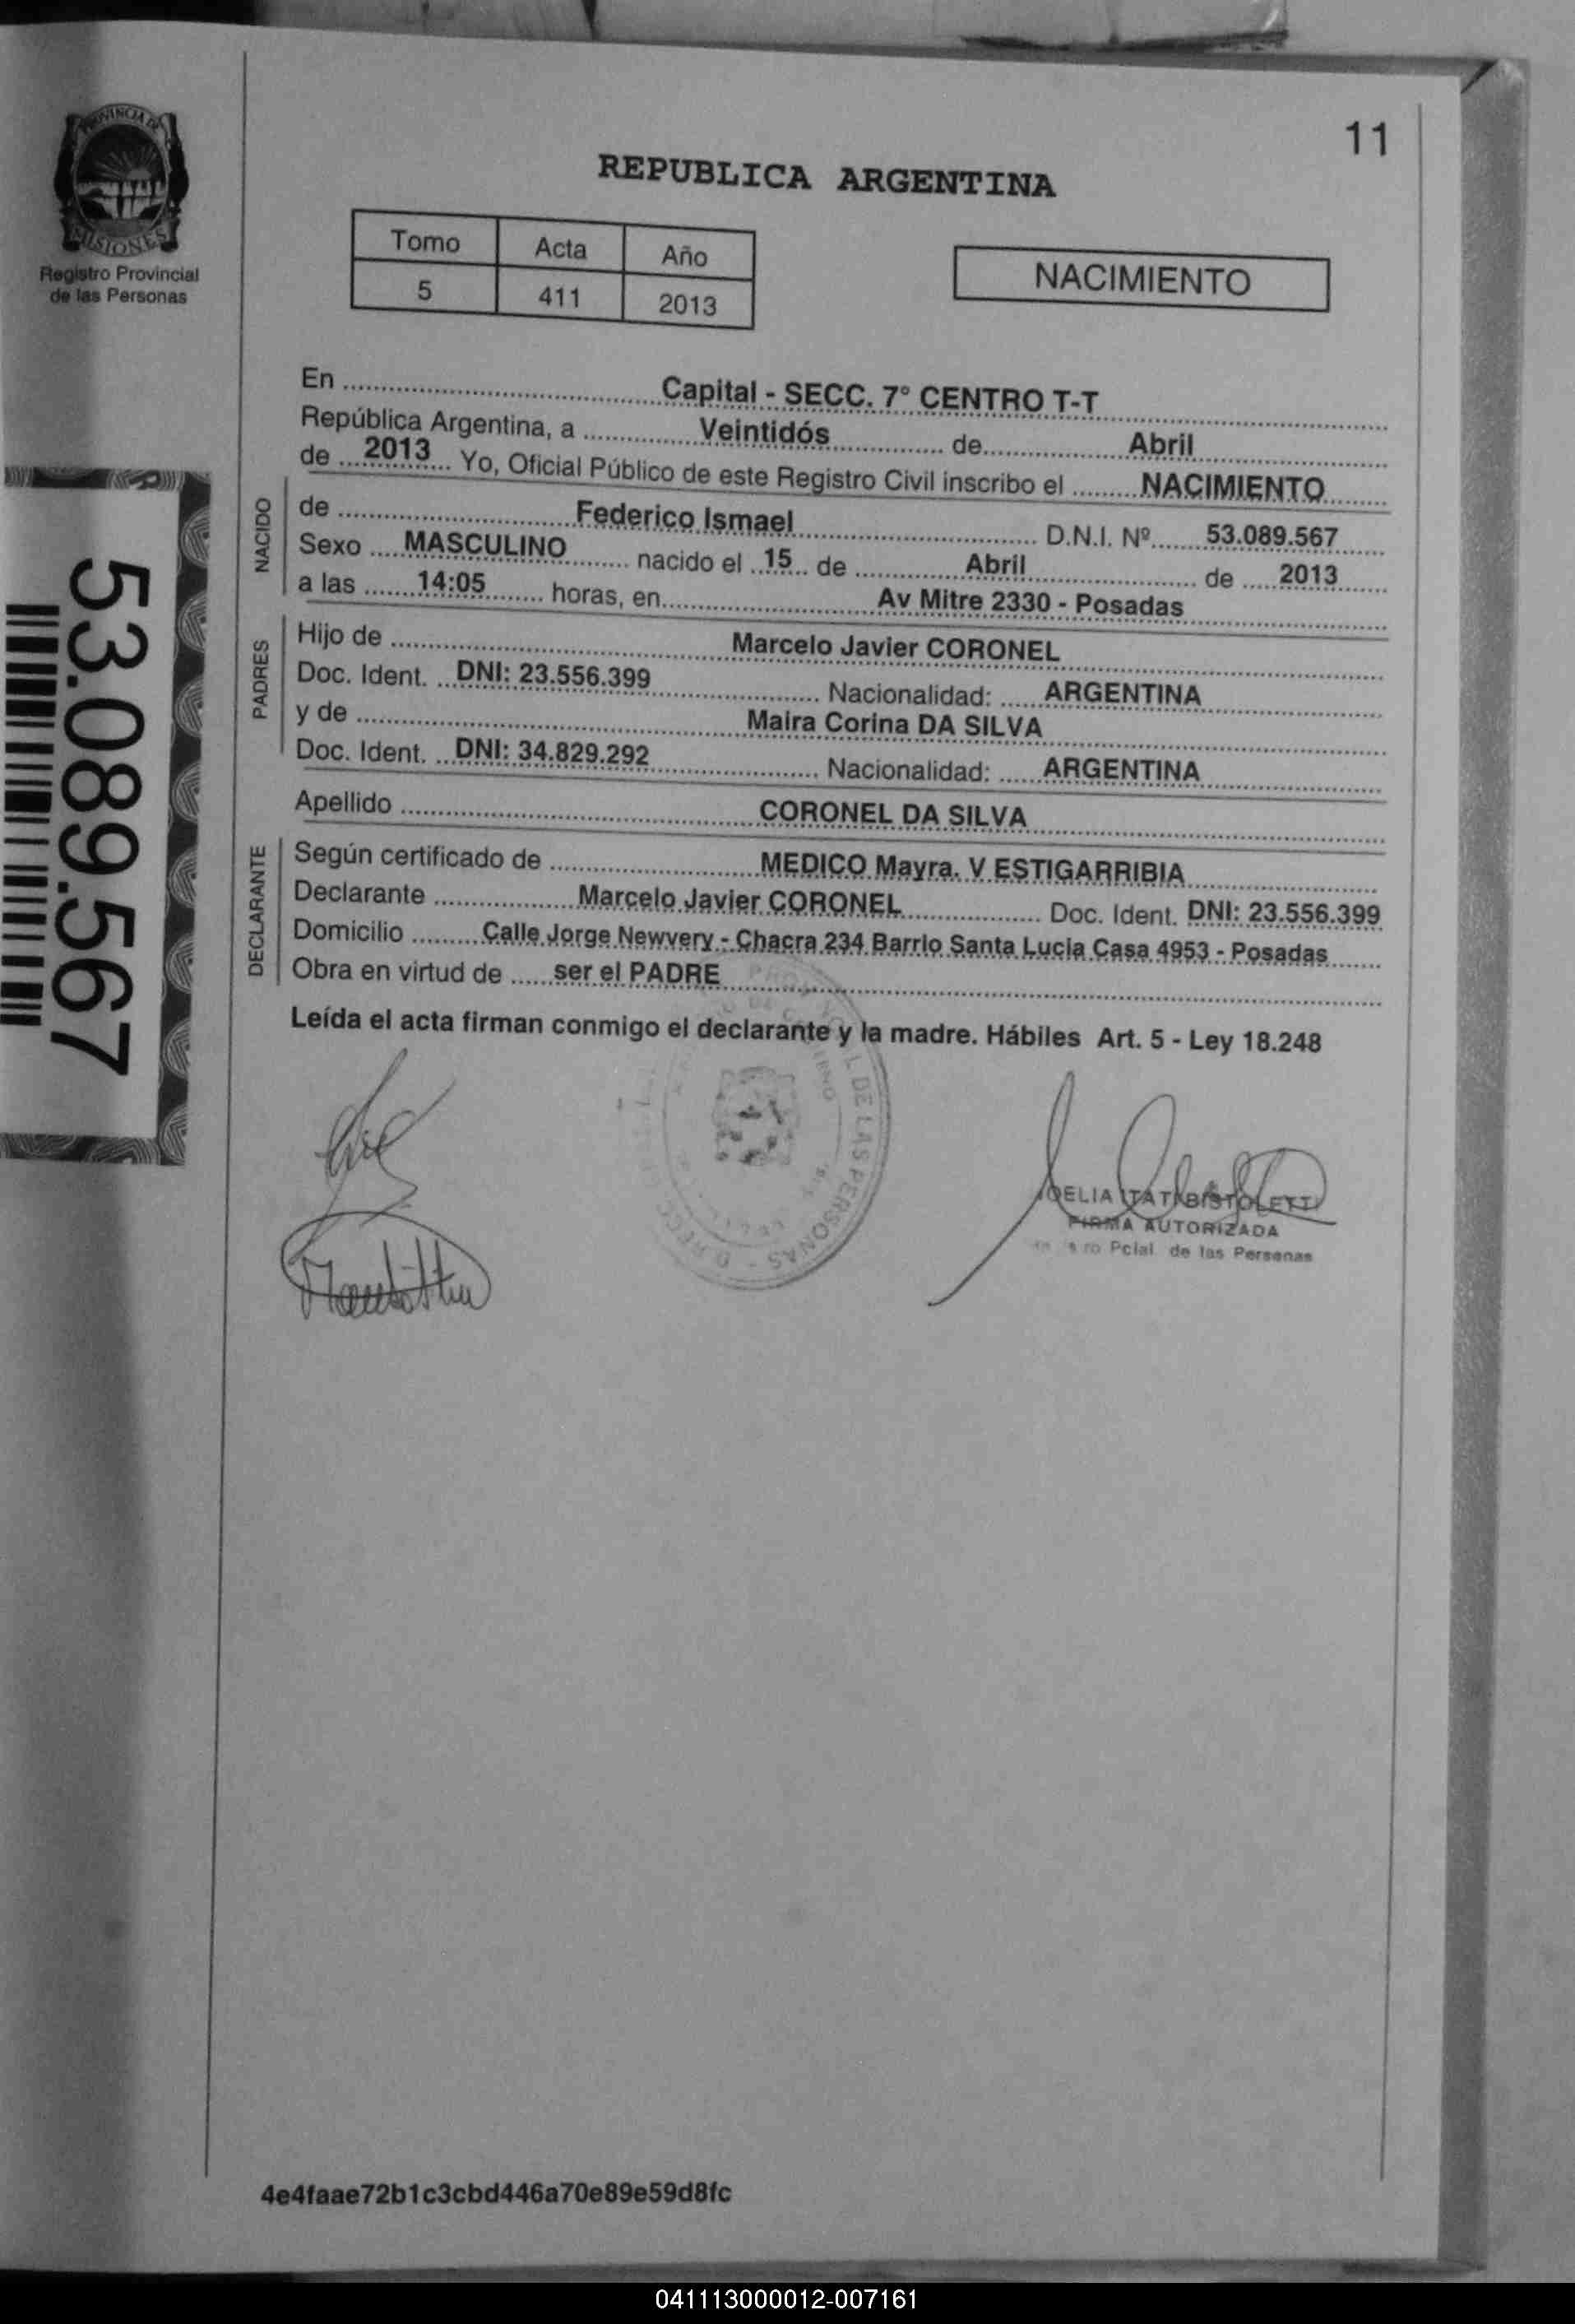 11
PROVINCIA DE
MISIONES
Registro Provincial
de las Personas
REPUBLICA ARGENTINA
Tomo Acta Año
5 411 2013
NACIMIENTO
En Capital - SECC. 7° CENTRO T-T
República Argentina, a Veintidós de Abril
de 2013 Yo, Oficial Público de este Registro Civil inscribo el NACIMIENTO
NACIDO
de Federico Ismael D.N.I. Nº 53.089.567
Sexo MASCULINO nacido el 15 de Abril de 2013
a las 14:05 horas, en Av Mitre 2330 - Posadas
PADRES
Hijo de Marcelo Javier CORONEL
Doc. Ident. DNI: 23.556.399 Nacionalidad: ARGENTINA
y de Maira Corina DA SILVA
Doc. Ident. DNI: 34.829.292 Nacionalidad: ARGENTINA
Apellido CORONEL DA SILVA
DECLARANTE
Según certificado de MEDICO Mayra. V ESTIGARRIBIA
Declarante Marcelo Javier CORONEL Doc. Ident. DNI: 23.556.399
Domicilio Calle Jorge Newvery - Chacra 234 Barrio Santa Lucia Casa 4953 - Posadas
Obra en virtud de ser el PADRE
Leída el acta firman conmigo el declarante y la madre. Hábiles Art. 5 - Ley 18.248
53.089.567
DE LAS PERSONAS
FIRMA AUTORIZADA
Pcial. de las Personas
4e4faae72b1c3cbd446a70e89e59d8fc
041113000012-007161